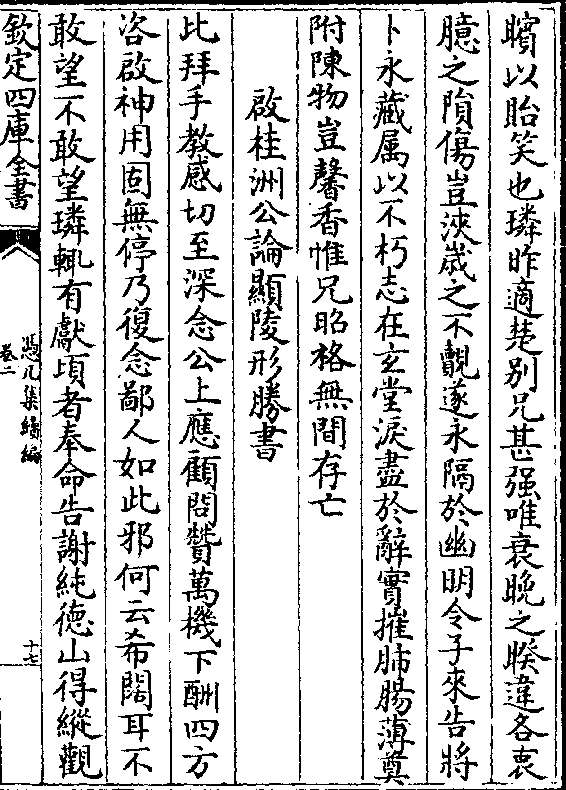 矉以貽笑也璘昨適楚别兄甚强唯衰晚之暌違各衷
臆之隕傷豈浹嵗之不覿遂永隔於幽明令子來告將
卜永藏属以不朽志在玄堂淚盡於辭實摧肺腸薄奠
附陳物豈馨香惟兄昭格無間存亡
啟桂洲公論顯陵形勝書
比拜手教感切至深念公上應顧問贊萬機下酬四方
咨啟神用固無停乃復念鄙人如此邪何云希闊耳不
敢望不敢望璘輒有獻頃者奉命告謝純德山得縱觀
欽定四庫全書
憑几集續編
卷二
十七